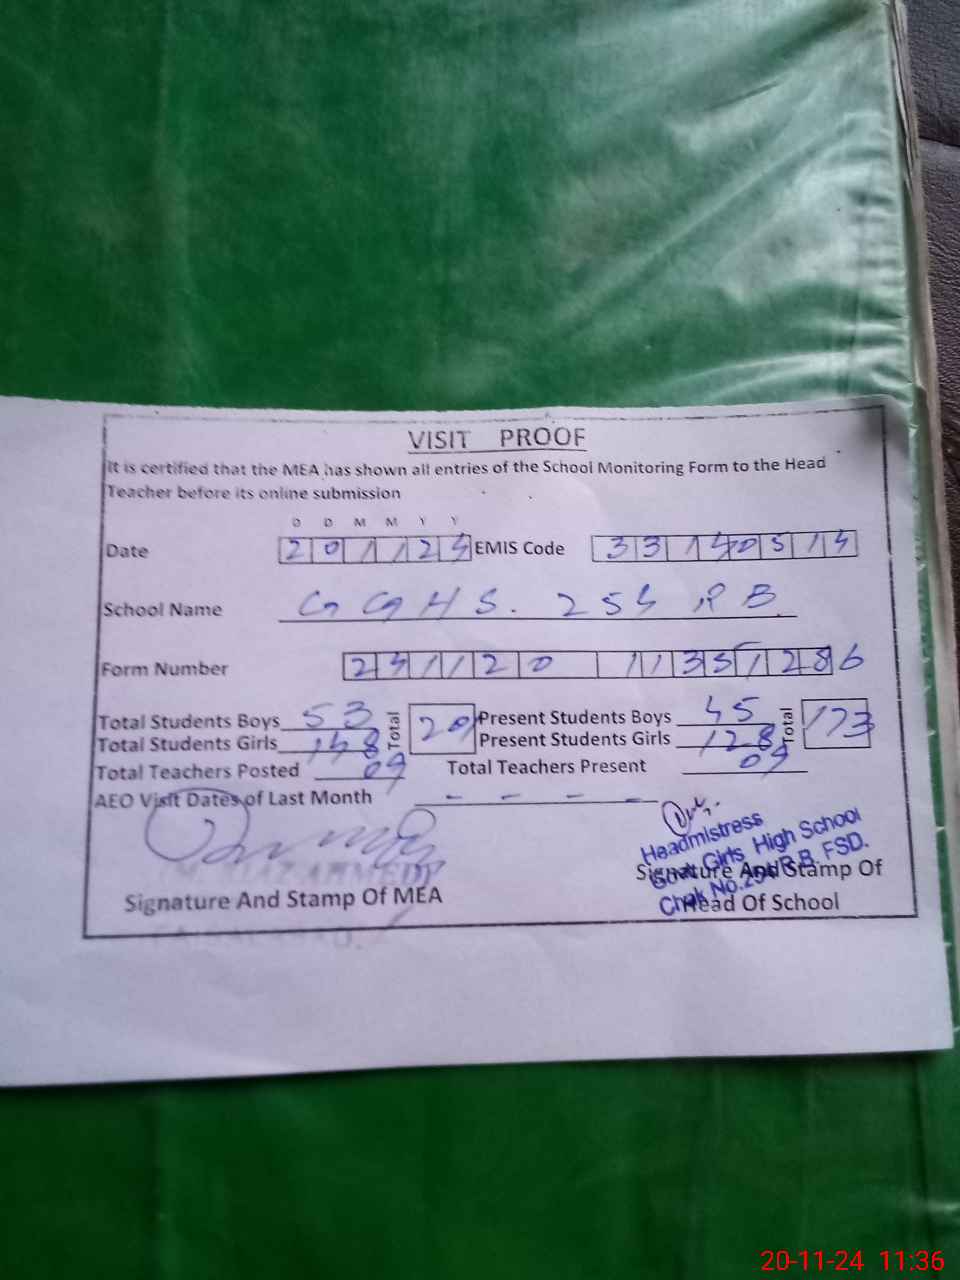 VISIT PROOF
It is certified that the MEA has shown all entries of the School Monitoring Form to the Head
Teacher before its online submission
D D M M Y Y
Date 201124 EMIS Code 33140514
School Name GGHS. 254 RB
Form Number 241120 113351286
Total Students Boys 53 Total 201 Present Students Boys 45 Total 173
Total Students Girls 148 Present Students Girls 128
Total Teachers Posted 09 Total Teachers Present 09
AEO Visit Dates of Last Month - - - -
Headmistress
Govt. Girls High School
Chak No.254 R.B. FSD.
Signature And Stamp Of MEA
Signature And Stamp Of
Head Of School
20-11-24 11:36